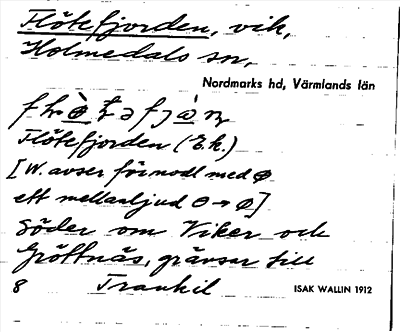 Flötefjorden, vik,
Holmedals sn,
Nordmarks hd, Värmlands län
Flötefjorden (E.k.)
[W. avser förmodl med ɵ
ett mellanljud ɵ → ø]
söder om Viker och
Gröttnäs, gränsar till
8 Trankil ISAK WALLIN 1912